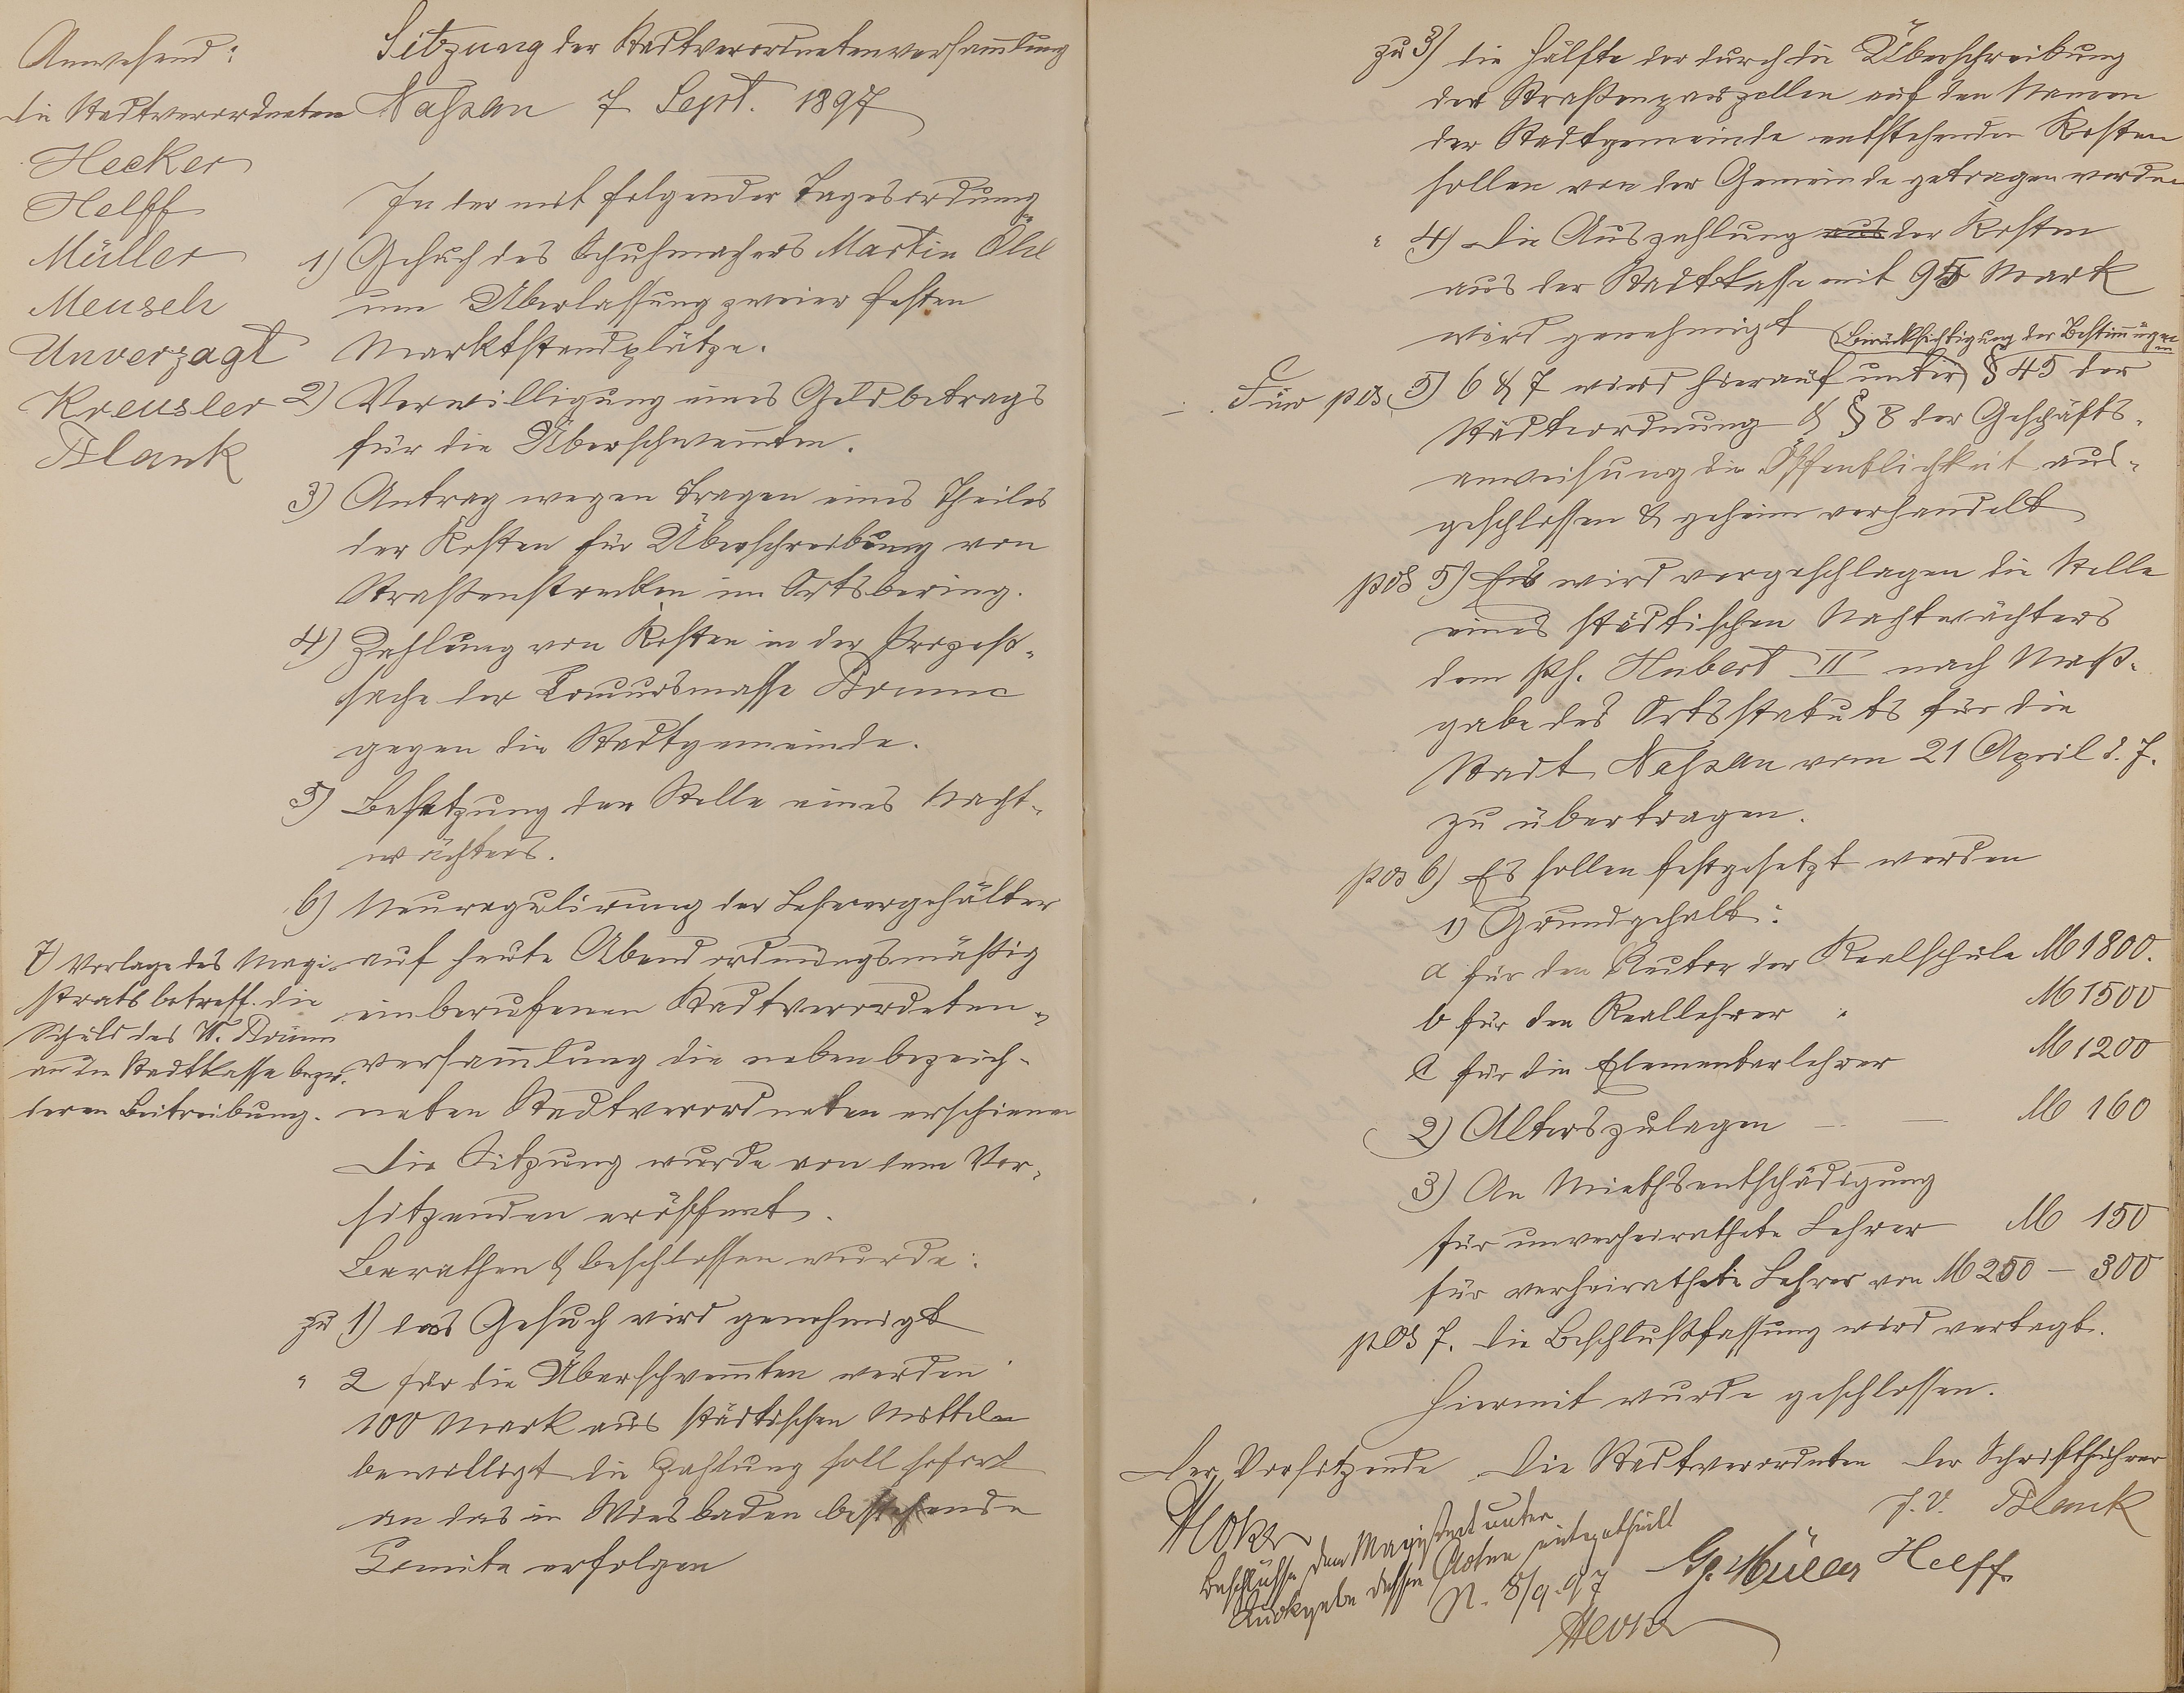 Anwesend:
die Stadtverordneten
Hecker
Helff
Müller
Meusch
Unverzagt
Kreusler
Blank
Sitzung der Stadtverordnetenversam̄lung
Nassau 7 Sept. 1897
In der mit folgender Tagesordnung
1) Gesuch des Schuhmachers Martin Öhl
um Überlassung zweier festen
Marktstandplätze.
2) Verwilligung eines Geldbetrags
für die Überschwem̄ten.
3) Antrag wegen Tragen eines Theiles
der Kosten für Überschreibung von
Straßenstrecken im Ortsbering.
4) Zahlung von Kosten in der Prozeß-
sache der Concursmasse
gegen die Stadtgemeinde.
5) Besetzung der Stelle eines Nacht-
wächters.
6) Neuregulirung der Lehrergehälter
7) Vorlage des Magi-
strats betreff. die
Schuld des W.
an die Stadtkasse bezw.
deren Beitreibung.
auf heute Abend ordnungsmäßig
einberufenen Stadtverordneten-
versam̄lung die neben bezeich-
neten Stadtverordneten erschienen
Die Sitzung wurde von dem Vor-
sitzenden eröffnet.
Berathen & beschlossen wurde:
zu 1) das Gesuch wird genehmigt
" 2 für die Überschwem̄ten werden
100 Mark aus städtischen Mitteln
bewilligt die Zahlung soll sofort
an das in Wiesbaden bestehende
Comite erfolgen
zu 3) die Hälfte der durch die Überschreibung
der Straßenparzellen auf den Namen
der Stadtgemeinde entstehenden Kosten
sollen von der Gemeinde getragen werden
" 4) Die Auszahlung aus der Kosten
aus der Stadtkasse mit 95 Mark
wird genehmigt
Berücksichtigung der Bestim̄ungen
in
Für pos 5) 6 & 7 wird hierauf unter § 45 der
Städteordnung & § 8 der Geschäfts-
anweisung die Öffentlichkeit aus-
geschlossen & geheim verhandelt
pos 5) Es wird vorgeschlagen die Stelle
eines städtischen Nachtwächters
dem Ph. Hubert II nach Maß-
gabe des Ortsstatuts für die
Stadt Nassau vom 21 April d. J.
zu übertragen.
pos 6) Es sollen festgesetzt werden
1) Grundgehalt:
a für den Rector der Realschule M 1800.
b für den Reallehrer " M 1500
c für die Elementarlehrer M 1200
2) Alterszulagen — — M 160
3) An Miethsentschädigung
für unverheirathete Lehrer M 150
für verheirathete Lehrer von M 250 — 300
pos 7. die Beschlußfassung wird vertagt.
Hiermit wurde geschlossen.
Der Vorsitzende Die Stadtverordneten Der Schriftführer
Hecker J. V. Blank
Gg. Müller Helff.
Beschlüsse dem Magistrat unter
Rückgabe dessen Acten mitgetheilt
N. 8/9. 97
Hecker